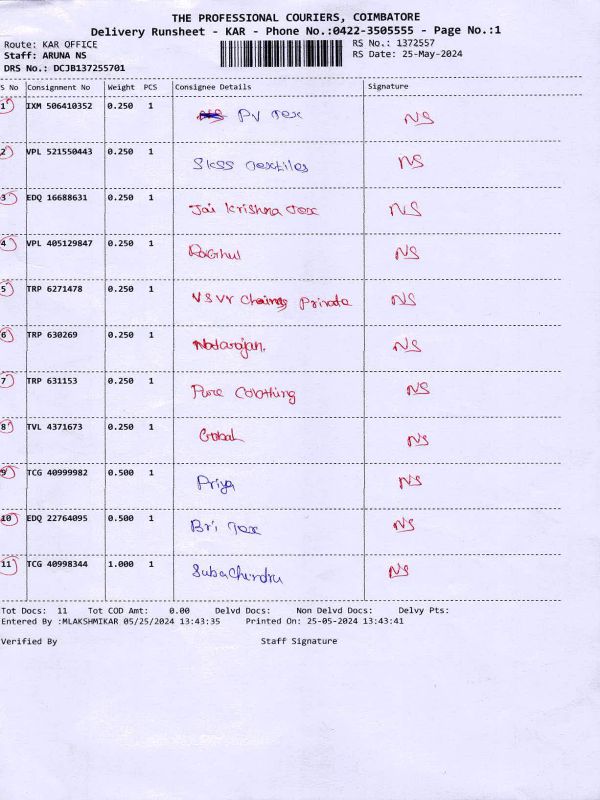 THE PROFESSIONAL COURIERS, COIMBATORE
Delivery Runsheet - KAR - Phone No.:0422-3505555 - Page No.:1
Route: KAR OFFICE RS No.: 1372557
Staff: ARUNA NS RS Date: 25-May-2024
DRS No.: DCJB137255701
S No Consignment No Weight PCS Consignee Details Signature
1 IXM 506410352 0.250 1 PV Tex NS
2 VPL 521550443 0.250 1 SKSS Textiles NS
3 EDQ 16688631 0.250 1 Jai Krishna Tex NS
4 VPL 405129847 0.250 1 RaGhul NS
5 TRP 6271478 0.250 1 VSVV Private NS
6 TRP 630269 0.250 1 Natarajan. NS
7 TRP 631153 0.250 1 Pure Coothing NS
8 TVL 4371673 0.250 1 NS
9 TCG 40999982 0.500 1 Priya NS
10 EDQ 22764095 0.500 1 Bri Tex NS
11 TCG 40998344 1.000 1 NS
Tot Docs: 11 Tot COD Amt: 0.00 Delvd Docs: Non Delvd Docs: Delvy Pts:
Entered By :MLAKSHMIKAR 05/25/2024 13:43:35 Printed On: 25-05-2024 13:43:41
Verified By Staff Signature